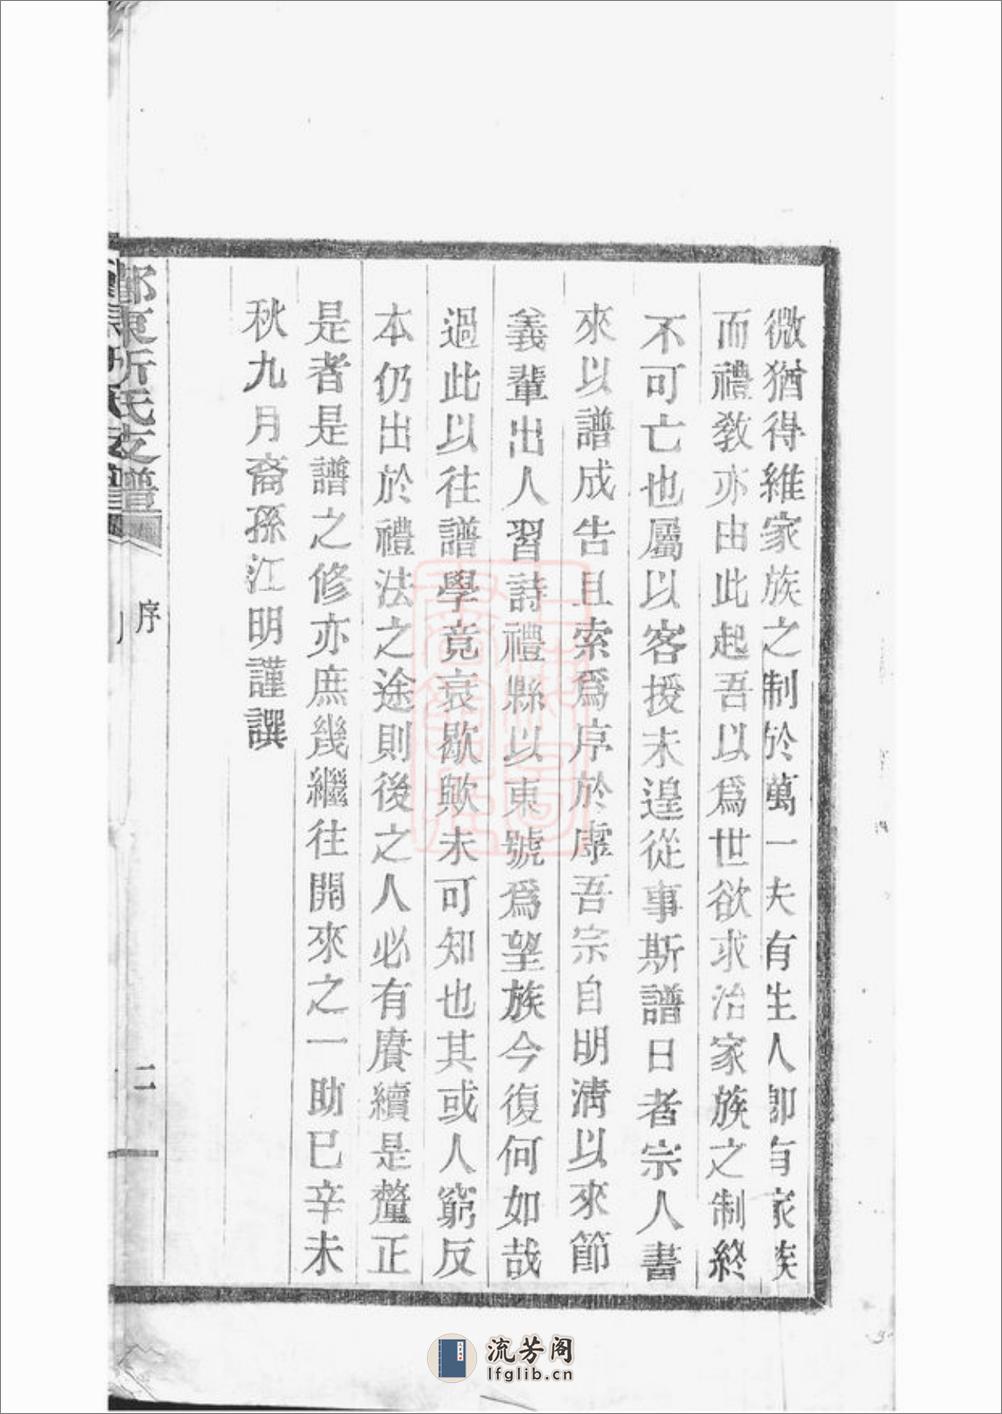 微猶得維家族之制於萬一夫有生人卽有家族
而禮教亦由此起吾以爲世欲求治家族之制終
不可亡也屬以客授未遑從事斯譜日者宗人書
來以譜成告且索爲序於虖吾宗自明清以來節
義輩出人習詩禮縣以東號爲望族今復何如哉
過此以往譜學竟衰歇歟未可知也其或人窮反
本仍出於禮法之途則後之人必有賡續是釐正
是者是譜之修亦庶幾繼往開來之一助已辛未
秋九月裔孫江明謹譔
東所氏支譜
序
二
流芳阁
lfglib.cn